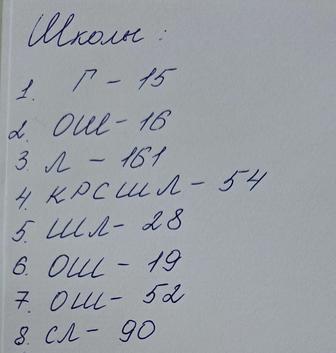 Школы:
1. Г - 15
2. ОШ - 16
3. Л - 161
4. КРСШЛ - 54
5. ШЛ - 28
6. ОШ - 19
7. ОШ - 52
8. СЛ - 90